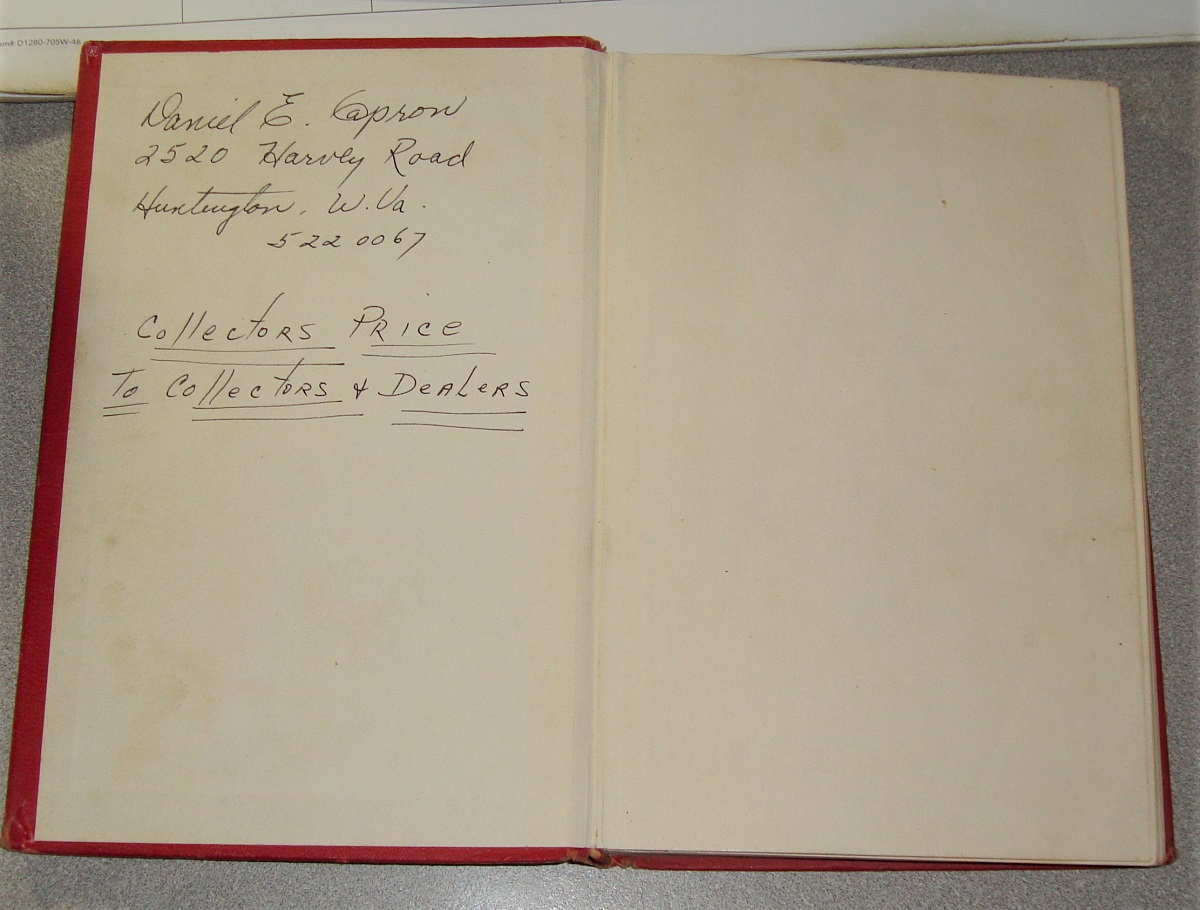 em# D1280-705W-46
Daniel E. Capron
2520 Harvey Road
Huntington, W.Va.
522 0067
Collectors Price
To Collectors & Dealers